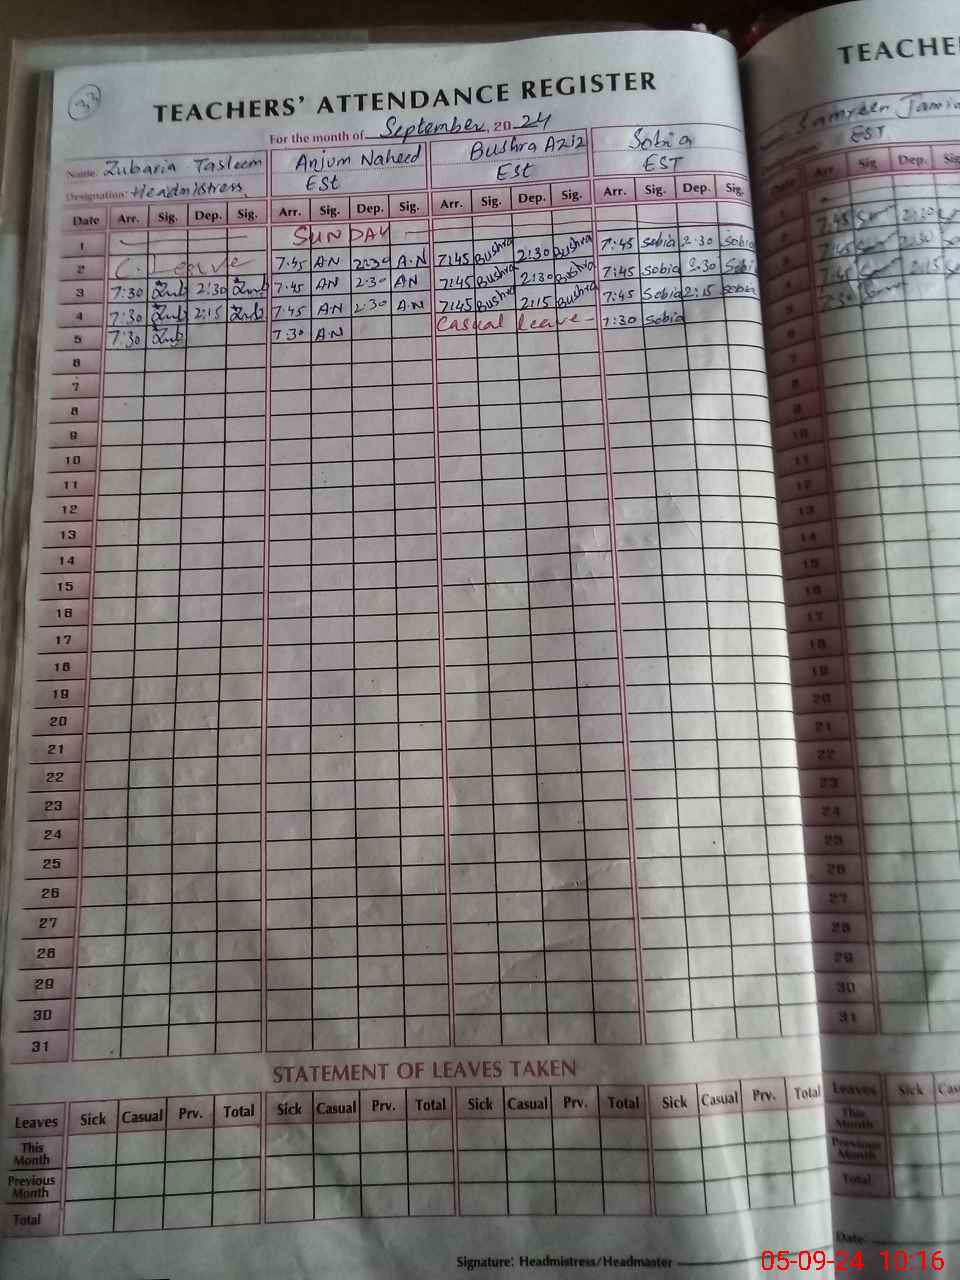 33
TEACHERS' ATTENDANCE REGISTER
For the month of September, 20 24
Name: Zubaria Tasleem Anjum Naheed Bushra Aziz Sobia
Designation: Headmistress ESt ESt EST
Date Arr. Sig. Dep. Sig. Arr. Sig. Dep. Sig. Arr. Sig. Dep. Sig. Arr. Sig. Dep. Sig.
1 SUNDAY
2 C. Leave 7:45 AN 2:30 A.N 7:45 Bushra 2:30 Bushra 7:45 Sobia 2:30 Sobia
3 7:30 Zub 2:30 Zub 7:45 AN 2:30 AN 7:45 Bushra 2:30 Bushra 7:45 Sobia 2:30 Sobia
4 7:30 Zub 2:15 Zub 7:45 AN 2:30 A.N 7:45 Bushra 2:15 Bushra 7:45 Sobia 2:15 Sobia
5 7:30 Zub 7:30 AN Casual Leave - 7:30 Sobia
6
7
8
9
10
11
12
13
14
15
16
17
18
19
20
21
22
23
24
25
26
27
28
29
30
31
STATEMENT OF LEAVES TAKEN
Leaves Sick Casual Prv. Total Sick Casual Prv. Total Sick Casual Prv. Total Sick Casual Prv. Total
This Month
Previous Month
Total
Signature: Headmistress/Headmaster
TEACHE
Samreen Jamil
EST
Date Arr Sig Dep. Sig
1
2 7:45 2:30
3 7:45 2:30
4 7:45 2:15
5 7:30
6
7
8
9
10
11
12
13
14
15
16
17
18
19
20
21
22
23
24
25
26
27
28
29
30
31
Leaves Sick Cas
This Month
Previous Month
Total
Date
05-09-24 10:16